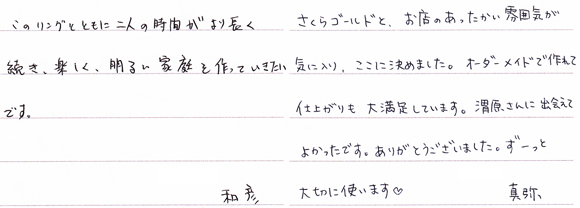 このリングとともに二人の時間がより長く
続き、楽しく、明るい家庭を作っていきたい
です。
和彦
さくらゴールドと、お店のあったかい雰囲気が
気に入り、ここに決めました。オーダーメイドで作れて
仕上がりも大満足しています。渭原さんに出会えて
よかったです。ありがとうございました。ずーっと
大切に使います♡
真弥